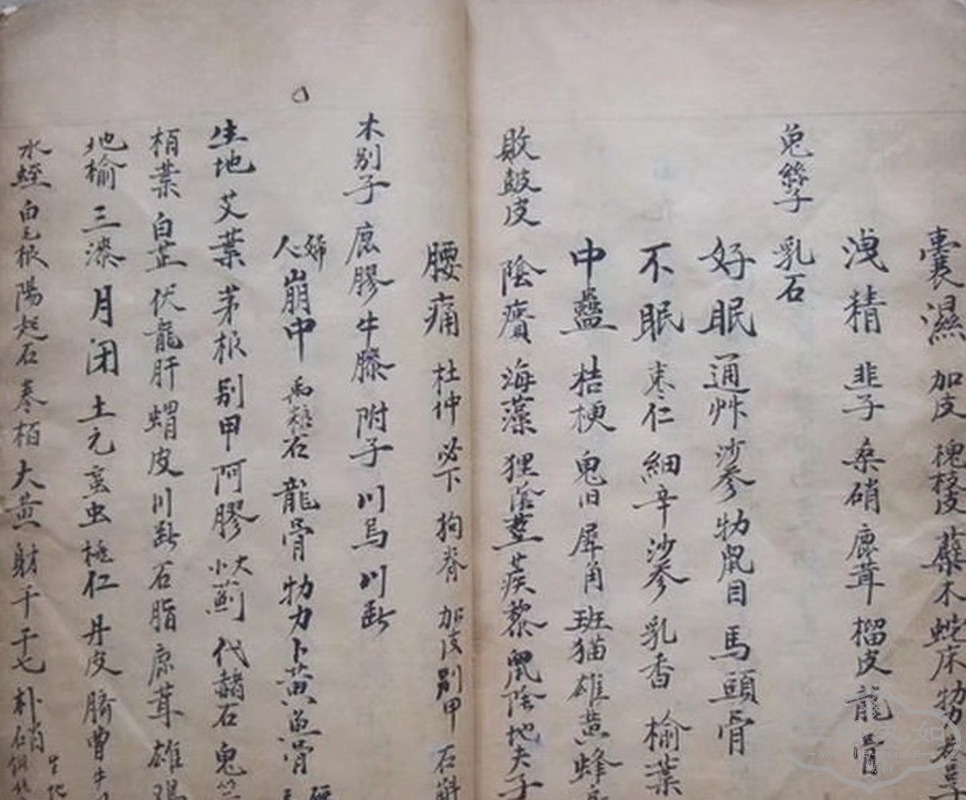 囊濕 加皮 槐枝皮 蘗木 蛇床 牡
洩精 韭子 桑硝 鹿茸 榴皮 龍骨
菟絲子 乳石
好眠 通艸 沙參 牡鼠目 馬頭骨
不眠 枣仁 細辛 沙参 乳香 榆葉
中蠱 桔梗 鬼臼 犀角 班猫 雄黄 蜂
敗鼓皮 陰㿉 海藻 狸陰莖 蒺藜 鼠陰 地夫子
腰痛 杜仲 必下 狗脊 加皮 别甲 石斛
木别子 鹿膠 牛膝 附子 川烏 川断
婦人崩中 禹粮石 龍骨 牡力 卜黄 魚骨
生地 艾葉 茅根 别甲 阿膠 大小薊 代赭石 鬼
栢葉 白芷 伏龍肝 蝟皮 川断 石脂 鹿茸 雄鸡
地榆 三漆 月闭 土元 虻虫 桃仁 丹皮 臍曹 牛
水蛭 白毛根 陽起石 卷栢 大黄 射干 干七 朴硝